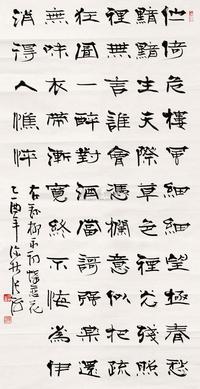 佇倚危樓風細細望極春愁
黯黯生天際草色煙光殘照
裡無言誰會憑欄意拟把疏
狂圖一醉對酒當歌強樂還
無味衣帶漸寬終不悔為伊
消得人憔悴
右録柳永詞蝶恋花
乙酉年